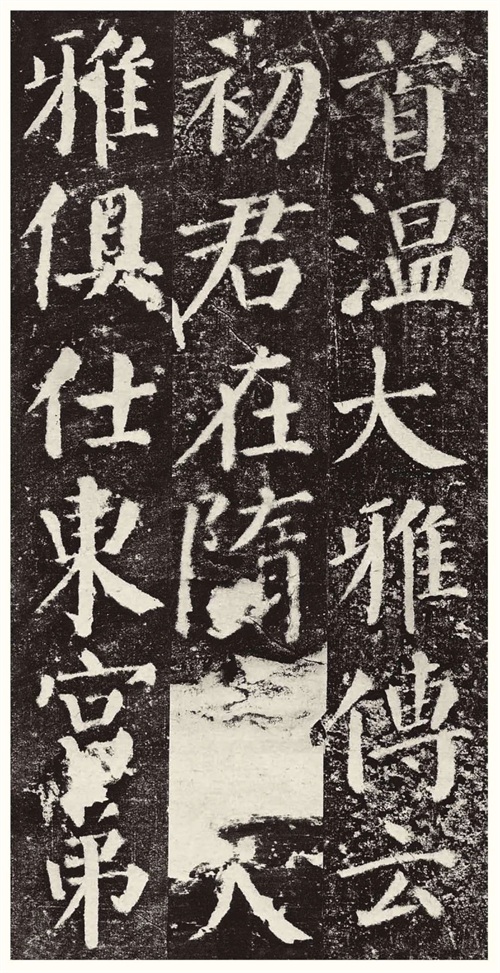 首温大雅傳云
初君在隋大
雅俱仕東宮弟